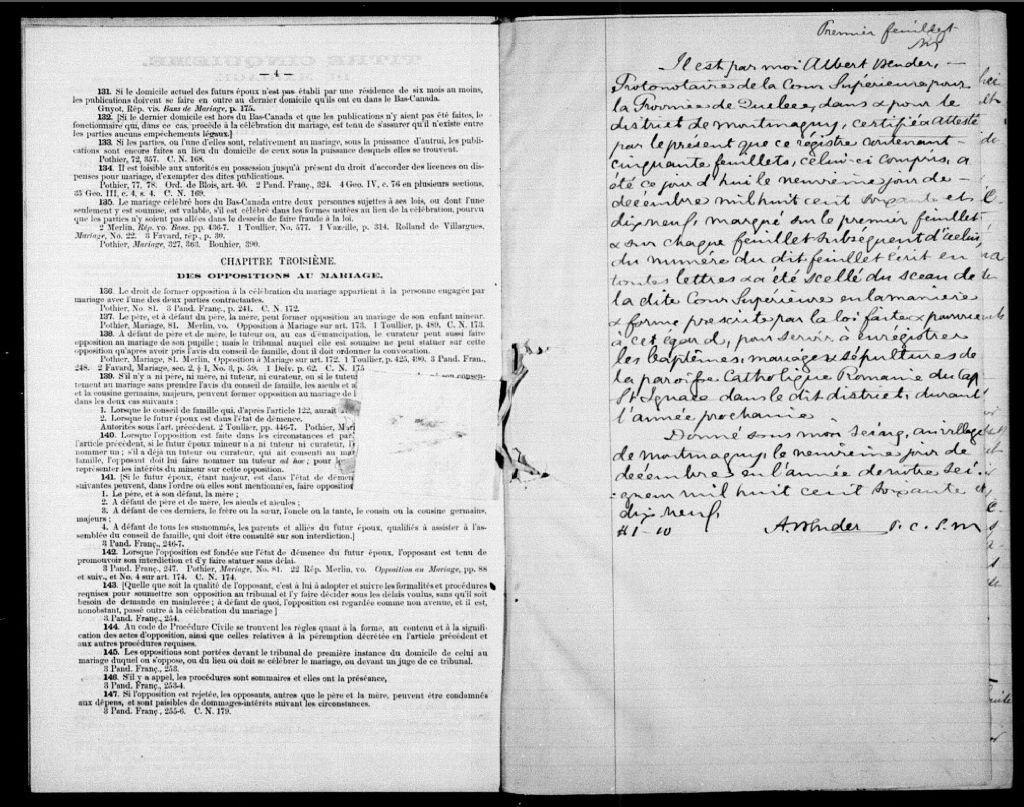 — 4 —
131. Si le domicile actuel des futurs époux n'est pas établi par une résidence de six mois au moins,
les publications doivent se faire en outre au dernier domicile qu'ils ont eu dans le Bas-Canada.
Guyot, Rép. vis. Bans de Mariage, p. 175.
132. [Si le dernier domicile est hors du Bas-Canada et que les publications n'y aient pas été faites, le
fonctionnaire qui, dans ce cas, procède à la célébration du mariage, est tenu de s'assurer qu'il n'existe entre
les parties aucuns empêchements légaux.]
133. Si les parties, ou l'une d'elles, sont, relativement au mariage, sous la puissance d'autrui, les publi-
cations sont encore faites au lieu du domicile de ceux sous la puissance desquels elles se trouvent.
Pothier, 72, 357. C. N. 168.
134. Il est loisible aux autorités en possession jusqu'à présent du droit d'accorder des licences ou dis-
penses pour mariage, d'exempter des dites publications.
Pothier, 77, 78. Ord. de Blois, art. 40. 2 Pand. Franç., 324. 4 Geo. IV, c. 76 en plusieurs sections,
35 Geo. III, c. 4, s. 4. C. N. 169.
135. Le mariage célébré hors du Bas-Canada entre deux personnes sujettes à ses lois, ou dont l'une
seulement y est soumise, est valable, s'il est célébré dans les formes usitées au lieu de la célébration, pourvu
que les parties n'y soient pas allées dans le dessein de faire fraude à la loi.
2 Merlin, Rép. vo. Bans, pp. 436-7. 1 Toullier, No. 577. 1 Vazeille, p. 314. Rolland de Villargues,
Mariage, No. 22. 3 Favard, rép., p. 30.
Pothier, Mariage, 327, 363. Bouhier, 390.
CHAPITRE TROISIÈME.
DES OPPOSITIONS AU MARIAGE.
136. Le droit de former opposition à la célébration du mariage appartient à la personne engagée par
mariage avec l'une des deux parties contractantes.
Pothier, No. 81. 3 Pand. Franç., p. 241. C. N. 172.
137. Le père, et à défaut du père, la mère, peut former opposition au mariage de son enfant mineur.
Pothier, Mariage, 81. Merlin, vo. Opposition à Mariage sur art. 173. 1 Toullier, p. 489. C. N. 173.
138. A défaut de père et de mère, le tuteur ou, au cas d'émancipation, le curateur peut aussi faire
opposition au mariage de son pupille; mais le tribunal auquel elle est soumise ne peut statuer sur cette
opposition qu'après avoir pris l'avis du conseil de famille, dont il doit ordonner la convocation.
Pothier, Mariage, 81. Merlin, Opposition à Mariage sur art. 172. 1 Toullier, p. 425, 490. 3 Pand. Fran.,
248. 2 Favard, Mariage, sec. 2, § 1, No. 3, p. 59. 1 Delv. p. 62. C. N. 175
139. S'il n'y a ni père, ni mère, ni tuteur, ni curateur, ou si le tuteu
tement au mariage sans prendre l'avis du conseil de famille, les aïeuls et a
et la cousine germains, majeurs, peuvent former opposition au mariage de l
dans les deux cas suivants :
1. Lorsque le conseil de famille qui, d'après l'article 122, aurait
2. Lorsque le futur époux est dans l'état de démence.
Autorités sous l'art. précédent. 2 Toullier, pp. 446-7. Pothier, Mari
140. Lorsque l'opposition est faite dans les circonstances et par
l'article précédent, si le futur époux mineur n'a ni tuteur ni curateur, l'
nommer un ; s'il a déjà un tuteur ou curateur, qui ait consenti au mar
famille, l'opposant doit lui faire nommer un tuteur ad hoc; pour le
représenter les intérêts du mineur sur cette opposition.
141. [Si le futur époux, étant majeur, est dans l'état de démen
suivantes peuvent, dans l'ordre où elles sont mentionnées, faire opposition
1. Le père, et à son défaut, la mère ;
2. A défaut de père et de mère, les aïeuls et aïeules ;
3. A défaut de ces derniers, le frère ou la sœur, l'oncle ou la tante, le cousin ou la cousine germains,
majeurs ;
4. A défaut de tous les susnommés, les parents et alliés du futur époux, qualifiés à assister à l'as-
semblée du conseil de famille, qui doit être consulté sur son interdiction.]
3 Pand. Franç., 246-7.
142. Lorsque l'opposition est fondée sur l'état de démence du futur époux, l'opposant est tenu de
promouvoir son interdiction et d'y faire statuer sans délai.
3 Pand. Franç., 247. Pothier, Mariage, No. 81. 22 Rép. Merlin, vo. Opposition au Mariage, pp. 88
et suiv., et No. 4 sur art. 174. C. N. 174.
143. [Quelle que soit la qualité de l'opposant, c'est à lui à adopter et suivre les formalités et procédures
requises pour soumettre son opposition au tribunal et l'y faire décider sous les délais voulus, sans qu'il soit
besoin de demande en mainlevée ; à défaut de quoi, l'opposition est regardée comme non avenue, et il est,
nonobstant, passé outre à la célébration du mariage]
3 Pand. Franç., 254.
144. Au code de Procédure Civile se trouvent les règles quant à la forme, au contenu et à la signifi-
cation des actes d'opposition, ainsi que celles relatives à la péremption décrétée en l'article précédent et
aux autres procédures requises.
145. Les oppositions sont portées devant le tribunal de première instance du domicile de celui au
mariage duquel on s'oppose, ou du lieu où doit se célébrer le mariage, ou devant un juge de ce tribunal.
3 Pand. Franç., 253.
146. S'il y a appel, les procédures sont sommaires et elles ont la préséance,
3 Pand. Franç., 253-4.
147. Si l'opposition est rejetée, les opposants, autres que le père et la mère, peuvent être condamnés
aux dépens, et sont passibles de dommages-intérêts suivant les circonstances.
3 Pand. Franç., 255-6. C. N. 179.
Premier feuillet
Il est par moi Albert Bender,
Protonotaire de la Cour Supérieure pour
la Province de Quebec, dans & pour le
district de Montmagny, certifié & attesté
par le présent que ce registre contenant
cinquante feuillets, celui-ci compris, a
été ce jour d'hui le neuvième jour de
décembre mil huit cent soixante et
dix neuf, marqué sur le premier feuillet
& sur chaque feuillet subséquent d'icelui,
du numéro du dit feuillet écrit en
toutes lettres & a été scellé du sceau de
la dite Cour Supérieure en la manière
& forme prescrite par la loi faite & pourvue
à cet égard, pour servir à enregistrer
les baptêmes, mariages & sépultures de
la paroisse Catholique Romaine du Cap
St Ignace dans le dit district, durant
l'année prochaine
Donné sous mon seing, au village
de Montmagny, le neuvième jour de
décembre, en l'année de notre Sei-
gneur mil huit cent soixante &
dix neuf,
A Bender P. C. S. M